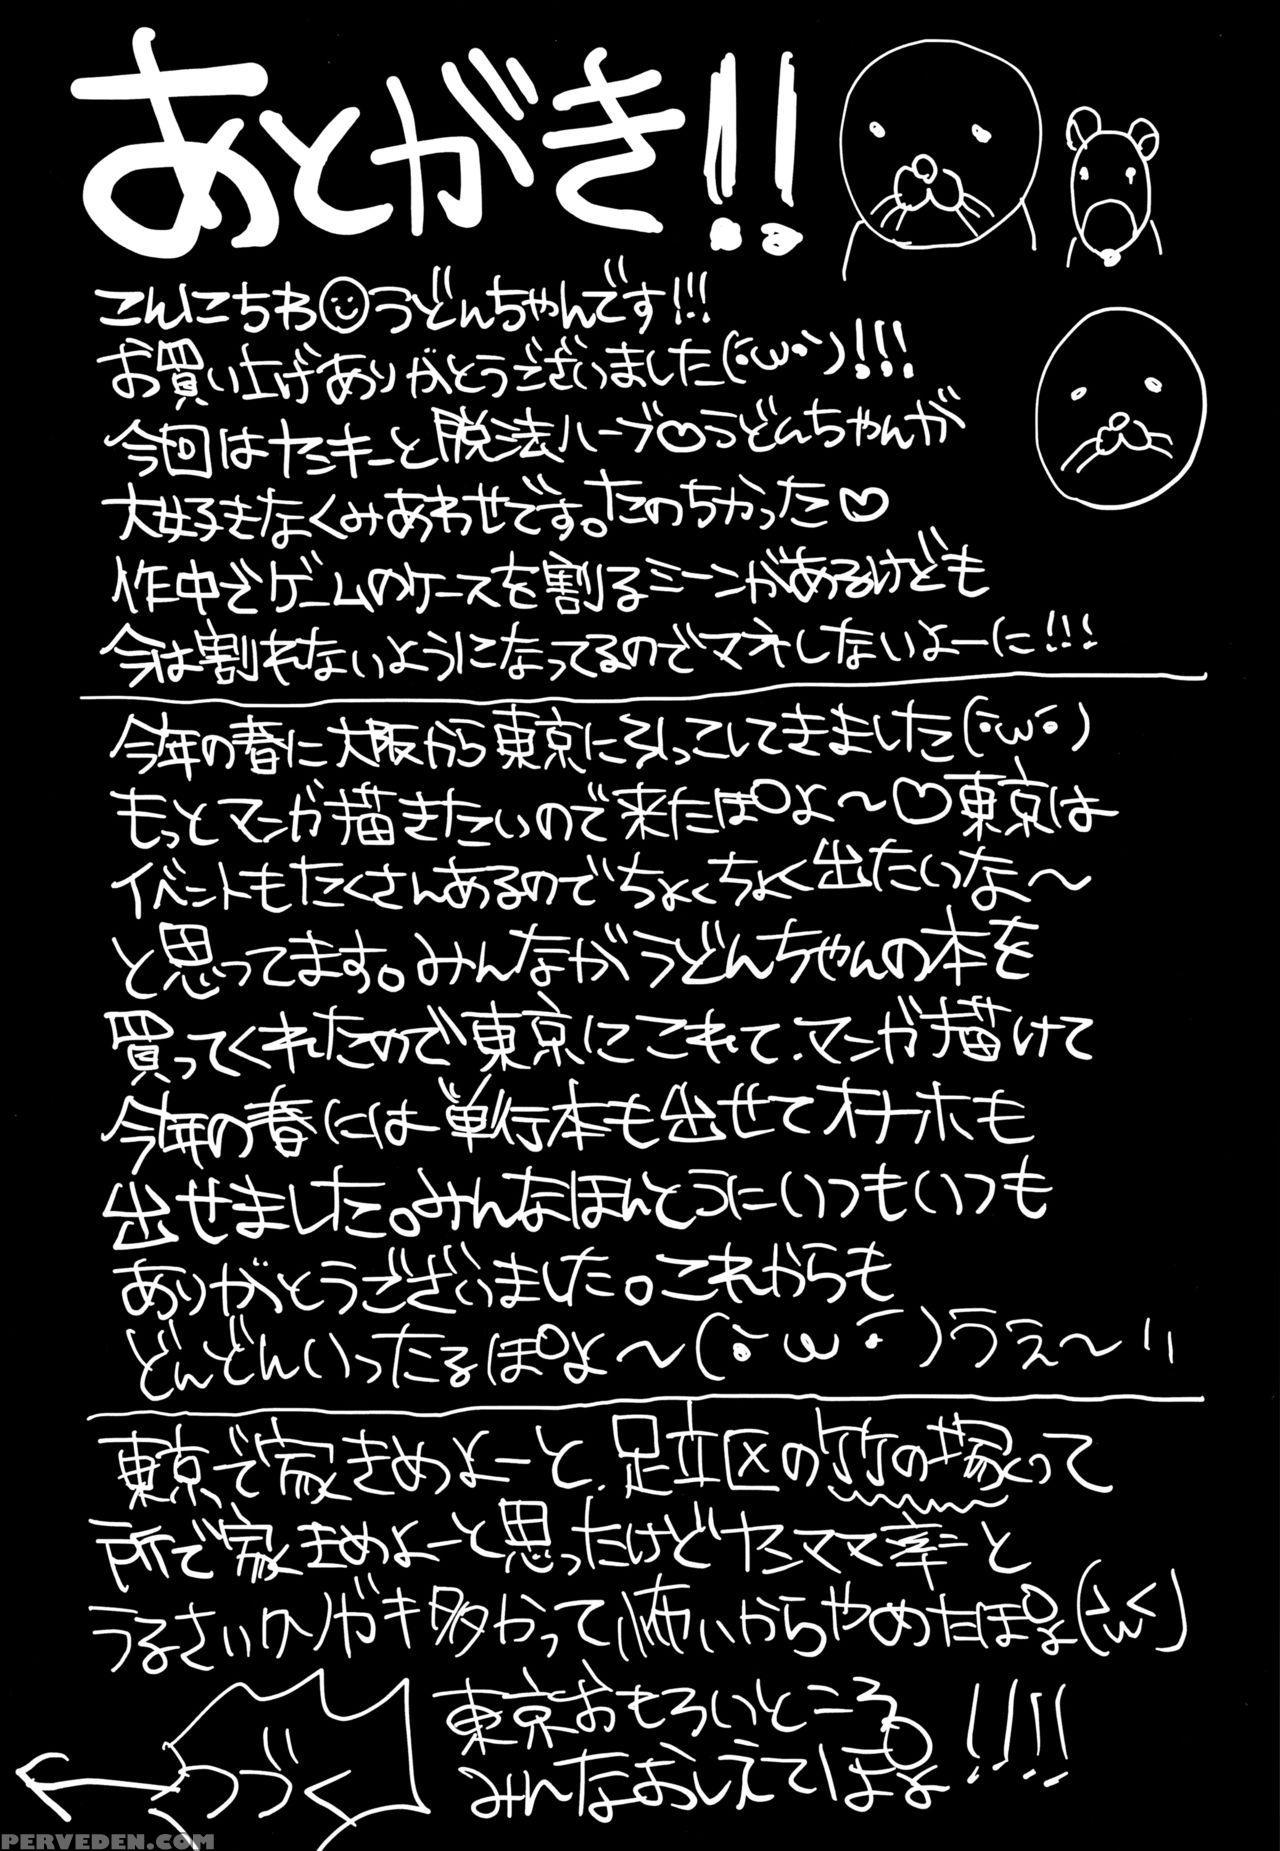 あとがき!!
こんにちわうどんちゃんです!!!
お買い上げありがとうございました(´ω`)!!!
今回はヤミキーと脱法ハーブ♡うどんちゃんが
大好きなくみあわせです。たのちかった♡
作中でゲームのケースを割るシーンがあるけども
今は割れないようになってるのでマネしないよーに!!!
今年の春に大阪から東京に引っこしてきました(´ω`)
もっとマンガ描きたいので来たぽよ〜♡東京は
イベントもたくさんあるのでちょくちょく出たいな〜
と思ってます。みんながうどんちゃんの本を
買ってくれたので東京にこれて、マンガ描けて
今年の春には単行本も出せてオナホも
出せました。みんなほんとうにいつもいつも
ありがとうございました。これからも
どんどんいったるぽよ〜(´ω`)うぇ〜!!
東京で家きめよーと、足立区の竹の塚って
所で家きめよーと思ったけどヤンママ率と
うるさいクソガキ多かって怖いからやめたぽよ(´ω`)
東京おもろいところ
みんなおしえてぽよ!!!!
つづく
PERVEDEN.COM